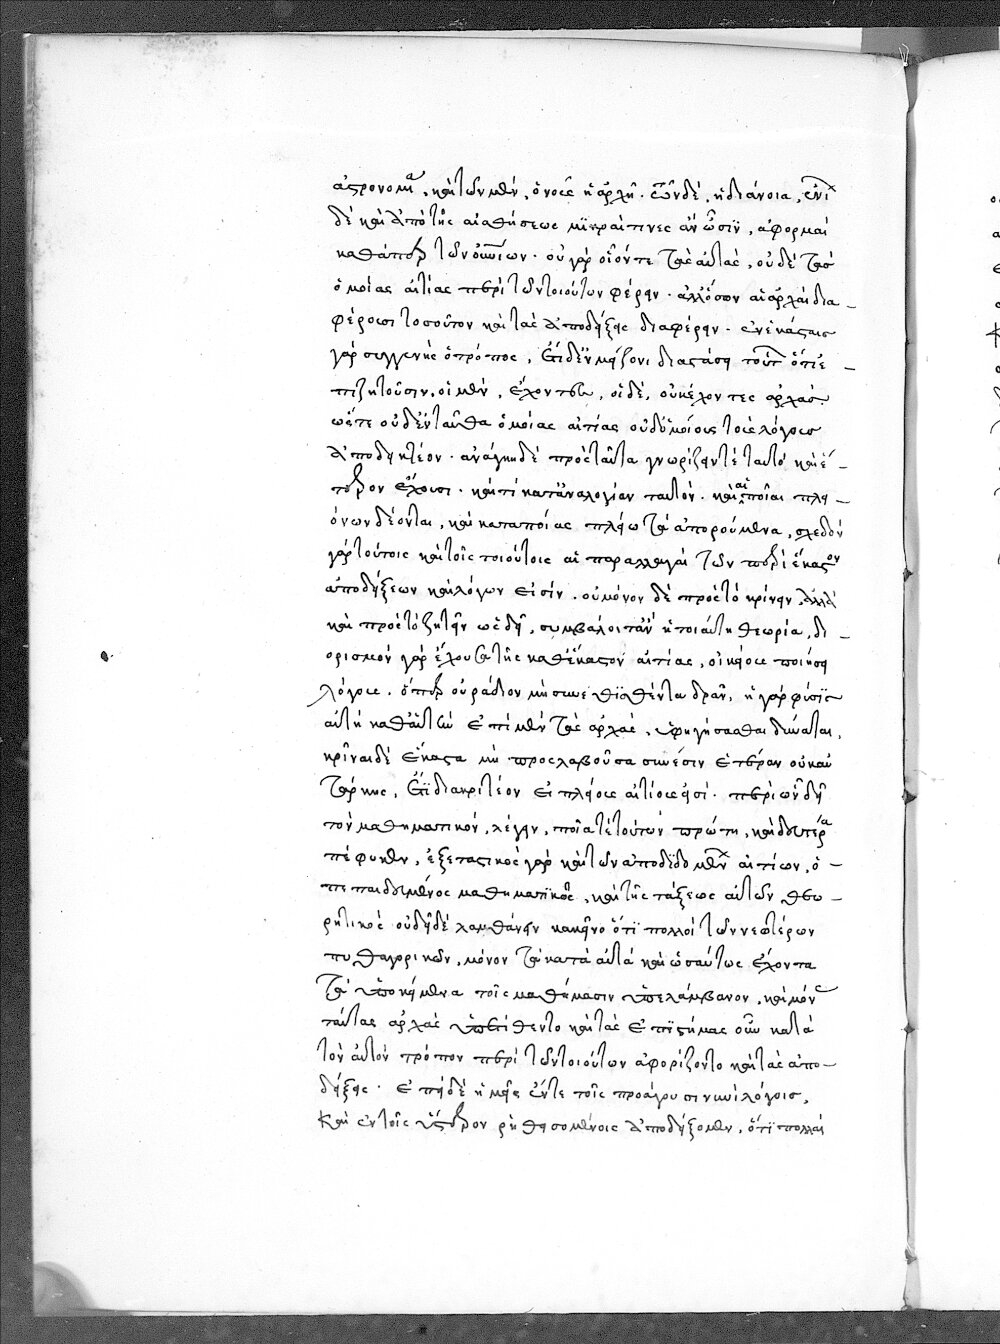 ἀστρονομία, καὶ τῶν μὲν, ὁ νοῦς ἡ ἀρχὴ. τῶν δὲ, ἡ διάνοια, ἐνί
δὲ καὶ ἀπὸ τῆς αἰσθήσεως μικραί τινες ἂν ὦσιν, ἀφορμαί
καθάπερ τῶν ὀπτικῶν. οὐ γὰρ οἷόν τε τὰς αὐτὰς, οὐδὲ τὰς
ὁμοίας αἰτίας περὶ τῶν τοιούτων φέρειν. ἀλλ' ὅσον αἱ ἀρχαὶ δια-
φέρουσι τοσοῦτον καὶ τὰς ἀποδείξεις διαφέρειν. ἐν ἑκάστοις
γὰρ συγγενὴς ὁ τρόπος, ἔτι δ' ἐν μείζονι διαστάσει τοῦτ' ὅτι ἐ-
πιζητοῦσιν, οἱ μὲν, ἔχοντες, οἱ δὲ, οὐκ ἔχοντες ἀρχάς.
ὥστε οὐδ' ἐνταῦθα ὁμοίας αἰτίας οὐδ' ὁμοίους τοὺς λόγους
ἀποδεκτέον. ἀνάγκη δὲ πρὸς ταῦτα γνωρίζειν τὲ ταυτὸ καὶ ἕ-
τερον ἔχουσι. καὶ τί κατ' ἀναλογίαν ταυτόν. καὶ αἱ ποῖαι πλει-
όνων δέονται, καὶ κατὰ ποίας πλείω τὰ ἀπορούμενα, σχεδὸν
γὰρ τούτοις καὶ τοῖς τοιούτοις αἱ παραλλαγαὶ τῶν περὶ ἕκαστον
ἀποδείξεων καὶ λόγων εἰσίν. οὐ μόνον δὲ πρὸς τὸ κρίνειν ἀλλὰ
καὶ πρὸς τὸ ζητεῖν ὡς δεῖ, συμβάλοιτ' ἂν ἡ τοιαύτη θεωρία, δι-
ορισμὸν γὰρ ἔχουσα τῆς καθ' ἕκαστον αἰτίας, οἰκείους ποιήσει
λόγους. ὅπερ οὐ ῥάδιον μὴ συνεθισθέντα δρᾶν, ἡ γὰρ φύσις
αὐτὴ καθ' αὑτὴν ἐπὶ μὲν τὰς ἀρχὰς, ὑφηγήσασθαι δύναται,
κρῖναι δὲ ἕκαστα μὴ προσλαβοῦσα σύνεσιν ἑτέραν οὐκ αὐ
τάρκης, ἔτι διακριτέον εἰ πλείους αἰτίους εἰσί. περὶ ὧν δεῖ
τὸν μαθηματικὸν, λέγειν, ποία τὲ τούτων πρώτη, καὶ δευτέρα
πέφυκεν, ἐξεταστικὸς γὰρ καὶ τῶν ἀποδιδομένων αἰτίων, ὁ
πεπαιδευμένος μαθηματικῶς, καὶ τῆς τάξεως αὐτῶν θεω-
ρητικός οὐ δεῖ δὲ λανθάνειν κἀκεῖνο ὅτι πολλοὶ τῶν νεωτέρων
πυθαγορικῶν, μόνον τὰ κατὰ αὐτὰ καὶ ὡσαύτως ἔχοντα
τὰ ὑποκείμενα τοῖς μαθήμασιν ὑπελάμβανον, καὶ μόν
ταύτας ἀρχὰς ὑπετίθεντο καὶ τὰς ἐπιστήμας οὖν κατὰ
τὸν αὐτὸν τρόπον περὶ τῶν τοιούτων ἀφορίζοντο καὶ τὰς ἀπο-
δείξεις. ἐπεὶ δὲ ἡμεῖς ἔν τε τοῖς προάγουσι νυνὶ λόγοις,
καὶ ἐν τοῖς ὕστερον ῥηθησομένοις ἀποδείξομεν, ὅτι πολλαὶ